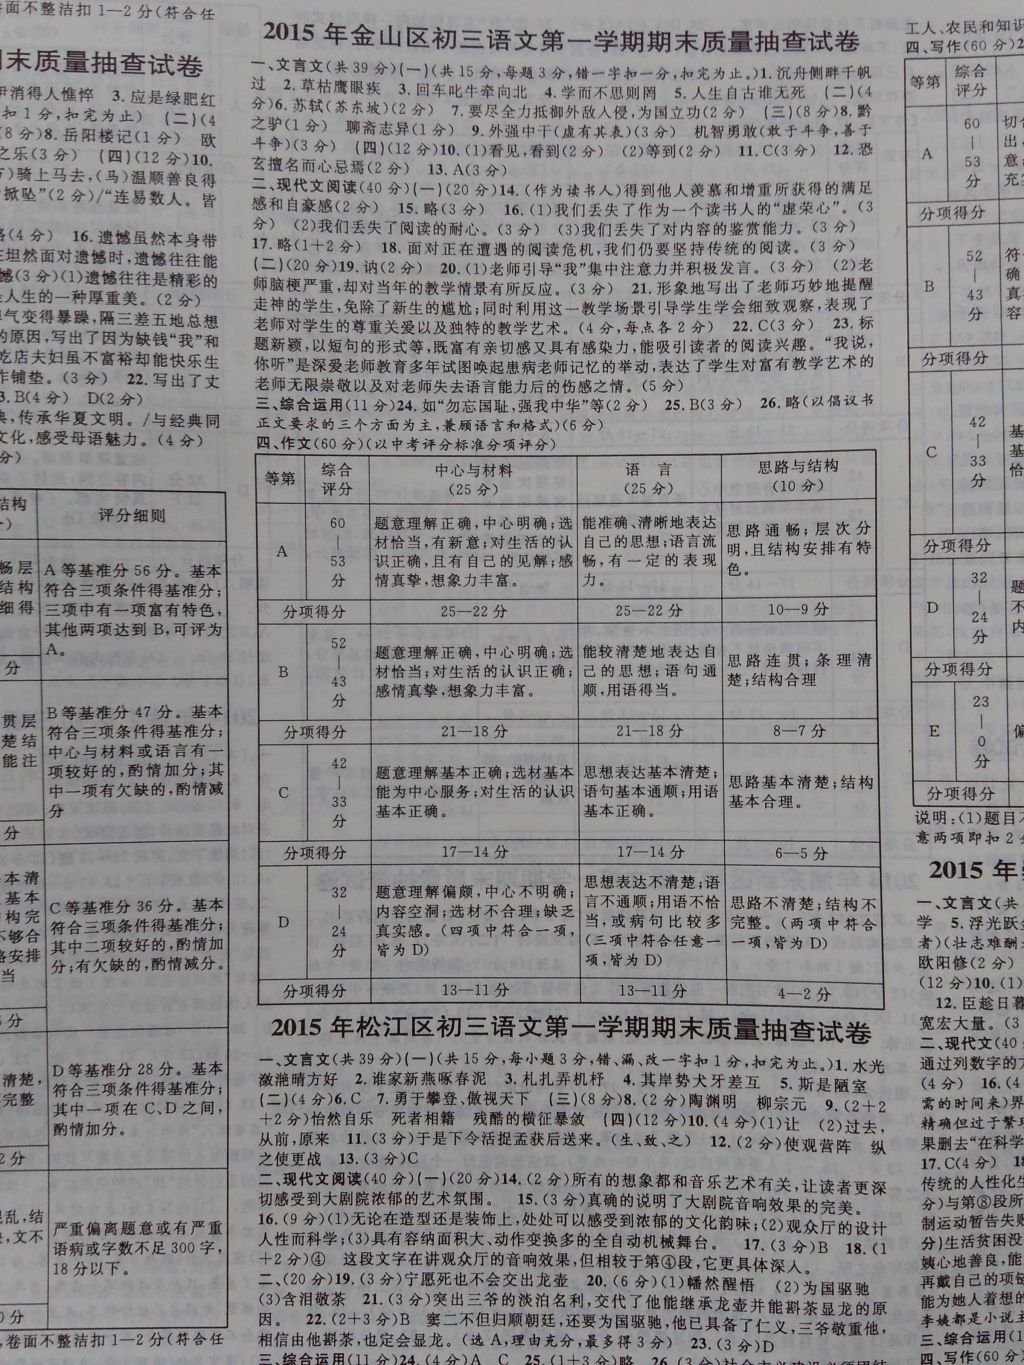 卷面不整洁扣1—2分(符合任
末质量抽查试卷
伊消得人憔悴 3.应是绿肥红
扣1分,扣完为止) (二)(4
(8分)8.岳阳楼记(1分) 欧
之乐(3分) (四)(12分)10.
骑上马去,(马)温顺善良得
“掀坠”(2分)/“连易数人。皆
略(4分) 16.遗憾虽然本身带
坦然面对遗憾时,遗憾往往能
憾(3分)(1)遗憾往往是精彩的
人生的一种厚重美。(2分)
气变得暴躁,隔三差五地总想
的原因,写出了因为缺钱“我”和
吃店夫妇虽不富裕却能快乐生
作铺垫。(3分) 22.写出了丈
B(4分) D(2分)
典,传承华夏文明。/与经典同
文化,感受母语魅力。(4分)
分)
结构
评分细则
畅层
结构
细得
A等基准分56分。基本
符合三项条件得基准分;
三项中有一项富有特色,
其他两项达到B,可评为
A。
分
贯层
楚结
能注
B等基准分47分。基本
符合三项条件得基准分;
中心与材料或语言有一
项较好的,酌情加分;其
中一项有欠缺的,酌情减
分
分
本清
基本
构完
不够合
络安排
当
C等基准分36分。基本
符合三项条件得基准分;
其中二项较好的,酌情加
分;有欠缺的,酌情减分。
5分
清楚,
完整
D等基准分28分。基本
符合三项条件得基准分;
其中一项在C、D之间,
酌情加分。
2分
混乱,结
,文不
严重偏离题意或有严重
语病或字数不足300字,
18分以下。
0分
,卷面不整洁扣1—2分(符合任
2015年金山区初三语文第一学期期末质量抽查试卷
一、文言文(共39分)(一)(共15分,每题3分,错一字扣一分,扣完为止。)1.沉舟侧畔千帆
过 2.草枯鹰眼疾 3.回车叱牛牵向北 4.学而不思则罔 5.人生自古谁无死 (二)(4
分)6.苏轼(苏东坡)(2分) 7.要尽全力抵御外敌入侵,为国立功(2分) (三)(8分)8.黔
之驴(1分) 聊斋志异(1分) 9.外强中干(虚有其表)(3分) 机智勇敢(敢于斗争,善于
斗争)(3分) (四)(12分)10.(1)看见,看到(2分) (2)等到(2分) 11.C(3分) 12.恐
玄擅名而心忌焉(2分) 13.A(3分)
二、现代文阅读(40分)(一)(20分)14.(作为读书人)得到他人羡慕和增重所获得的满足
感和自豪感(2分) 15.略(3分) 16.(1)我们丢失了作为一个读书人的“虚荣心”。(3
分) (2)我们丢失了阅读的耐心。(3分) (3)我们丢失了对内容的鉴赏能力。(3分)
17.略(1+2分) 18.面对正在遭遇的阅读危机,我们仍要坚持传统的阅读。(3分)
(二)(20分)19.讷(2分) 20.(1)老师引导“我”集中注意力并积极发言。(3分) (2)老
师脑梗严重,却对当年的教学情景有所反应。(3分) 21.形象地写出了老师巧妙地提醒
走神的学生,免除了新生的尴尬;同时利用这一教学场景引导学生学会细致观察,表现了
老师对学生的尊重关爱以及独特的教学艺术。(4分,每点各2分) 22.C(3分) 23.标
题新颖,以短句的形式等,既富有亲切感又具有感染力,能吸引读者的阅读兴趣。“我说,
你听”是深爱老师教育多年试图唤起患病老师记忆的举动,表达了学生对富有教学艺术的
老师无限崇敬以及对老师失去语言能力后的伤感之情。(5分)
三、综合运用(11分)24.如“勿忘国耻,强我中华”等(2分) 25.B(3分) 26.略(以倡议书
正文要求的三个方面为主,兼顾语言和格式)(6分)
四、作文(60分)(以中考评分标准分项评分)
等第
综合
评分
中心与材料
(25分)
语 言
(25分)
思路与结构
(10分)
A
60
|
53
分
题意理解正确,中心明确;选
材恰当,有新意;对生活的认
识正确,且有自己的见解;感
情真挚,想象力丰富。
能准确、清晰地表达
自己的思想;语言流
畅,有一定的表现
力。
思路通畅;层次分
明,且结构安排有特
色。
分项得分
25—22分
25—22分
10—9分
B
52
|
43
分
题意理解正确,中心明确;选
材恰当;对生活的认识正确;
感情真挚,想象力丰富。
能较清楚地表达自
己的思想;语句通
顺,用语得当。
思路连贯;条理清
楚;结构合理
分项得分
21—18分
21—18分
8—7分
C
42
|
33
分
题意理解基本正确;选材基本
能为中心服务;对生活的认识
基本正确。
思想表达基本清楚;
语句基本通顺;用语
基本正确。
思路基本清楚;结构
基本合理。
分项得分
17—14分
17—14分
6—5分
D
32
|
24
分
题意理解偏颇,中心不明确;
内容空洞;选材不合理;缺乏
真实感。(四项中符合一项,
皆为D)
思想表达不清楚;语
言不通顺;用语不恰
当,或病句比较多
(三项中符合任意一
项,皆为D)
思路不清楚;结构不
完整。(两项中符合
一项,皆为D)
分项得分
13—11分
13—11分
4—2分
2015年松江区初三语文第一学期期末质量抽查试卷
一、文言文(共39分)(一)(共15分,每小题3分,错、漏、改一字扣1分,扣完为止。)1.水光
潋滟晴方好 2.谁家新燕啄春泥 3.札札弄机杼 4.其岸势犬牙差互 5.斯是陋室
(二)(4分)6.C 7.勇于攀登、傲视天下 (三)(8分)8.(2分)陶渊明 柳宗元 9.(2+2
+2分)怡然自乐 死者相籍 残酷的横征暴敛 (四)(12分)10.(4分)(1)让 (2)过去,
从前,原来 11.(3分)于是下令活捉孟获后送来。(生、致、之) 12.(2分)使观营阵 纵
之使更战 13.(3分)C
二、现代文阅读(40分)(一)(20分)14.(2分)所有的想象都和音乐艺术有关,让读者更深
切感受到大剧院浓郁的艺术氛围。 15.(3分)真确的说明了大剧院音响效果的完美。
16.(9分)(1)无论在造型还是装饰上,处处可以感受到浓郁的文化韵味;(2)观众厅的设计
人性而科学;(3)具有容纳面积大、动作变换多的全自动机械舞台。 17.(3分)B 18.(1
+2分)④ 这段文字在讲观众厅的音响效果,但相较于第④段,它更具体深入。
二、(20分)19.(3分)宁愿死也不会交出龙壶 20.(6分)(1)幡然醒悟 (2)为国驱驰
(3)含泪敬茶 21.(3分)突出三爷的淡泊名利,交代了他能继承龙壶并能斟茶显龙的原
因。 22.(2+3分)B 窦二不但归顺朝廷,还要为国驱驰,他已具备了仁义,三爷敬重他,
相信由他斟茶,也定会显龙。(选A,理由充分,最多得3分) 23.(3分)D
三、综合运用(11分)24.(4分)A C 25.(1+3分)略 26.(3分)
工人、农民和知识
四、写作(60分)2
等第
综合
评分
A
60
|
53
分
切合
出,
意;
充实
分项得分
B
52
|
43
分
符
确
真
容
分项得分
C
42
|
33
分
基
基
恰
分项得分
D
32
|
24
分
题
不
内
分项得分
E
23
|
0
分
偏
分项得分
说明:(1)题目不
意两项即扣2分
2015年
一、文言文(共
学 5.浮光跃金
者)(壮志难酬
欧阳修(2分)
(12分)10.(1)
12.臣趁日暮
宽宏大量。(3
二、现代文(40
通过列数字的方
(4分) 16.(4
需的时间来)界
精确但过于繁琐
果删去“在科学
17.C(4分) 18
传统的人性化生
分)与第⑧段所
制运动暂告失败
分)生活贫困没
姨心地善良,能
再戴自己的项链
能为她人着想的
李姨都是小说主
三、综合运用(1
四、写作(60分)